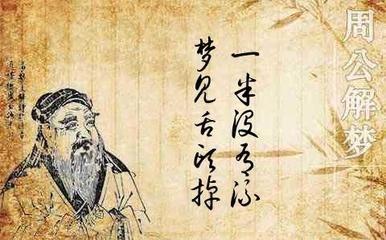 周公解梦
梦见舌头掉
一半没有流